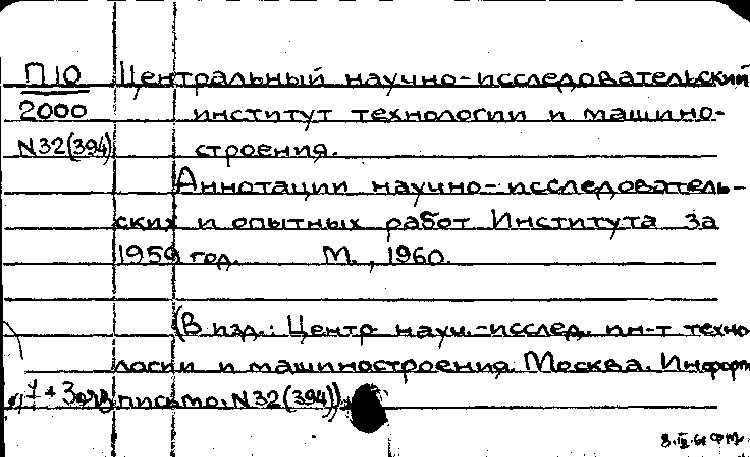 П10 Центральный научно-исследовательский
2000 институт технологии и машино-
N32(394) строения.
Аннотации научно-исследователь-
ских и опытных работ Института за
1959 год. М., 1960.
(В изд.: Центр. научн.-исслед. ин-т техно
логии и машиностроения. Москва. Информ
письмо, N32(394))